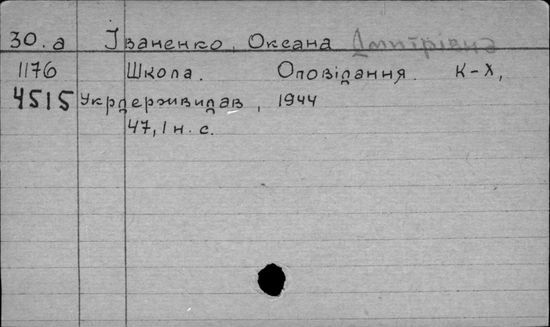 30.а Іваненко, Оксана Дмитрівна
1176 Школа. Оповідання. К-Х,
4515 Укрдержвидав, 1944
47, 1 н. с.